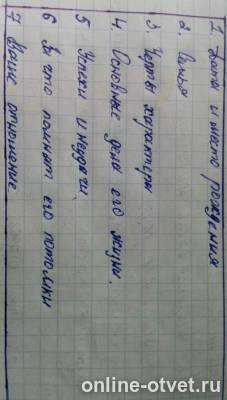 1 Дата и место рождения
2. Семья
3. Черты характера
4. Основные дела его жизни.
5 Успехи и неудачи
6 За что помнят его потомки
7 Ваше отношение
online-otvet.ru